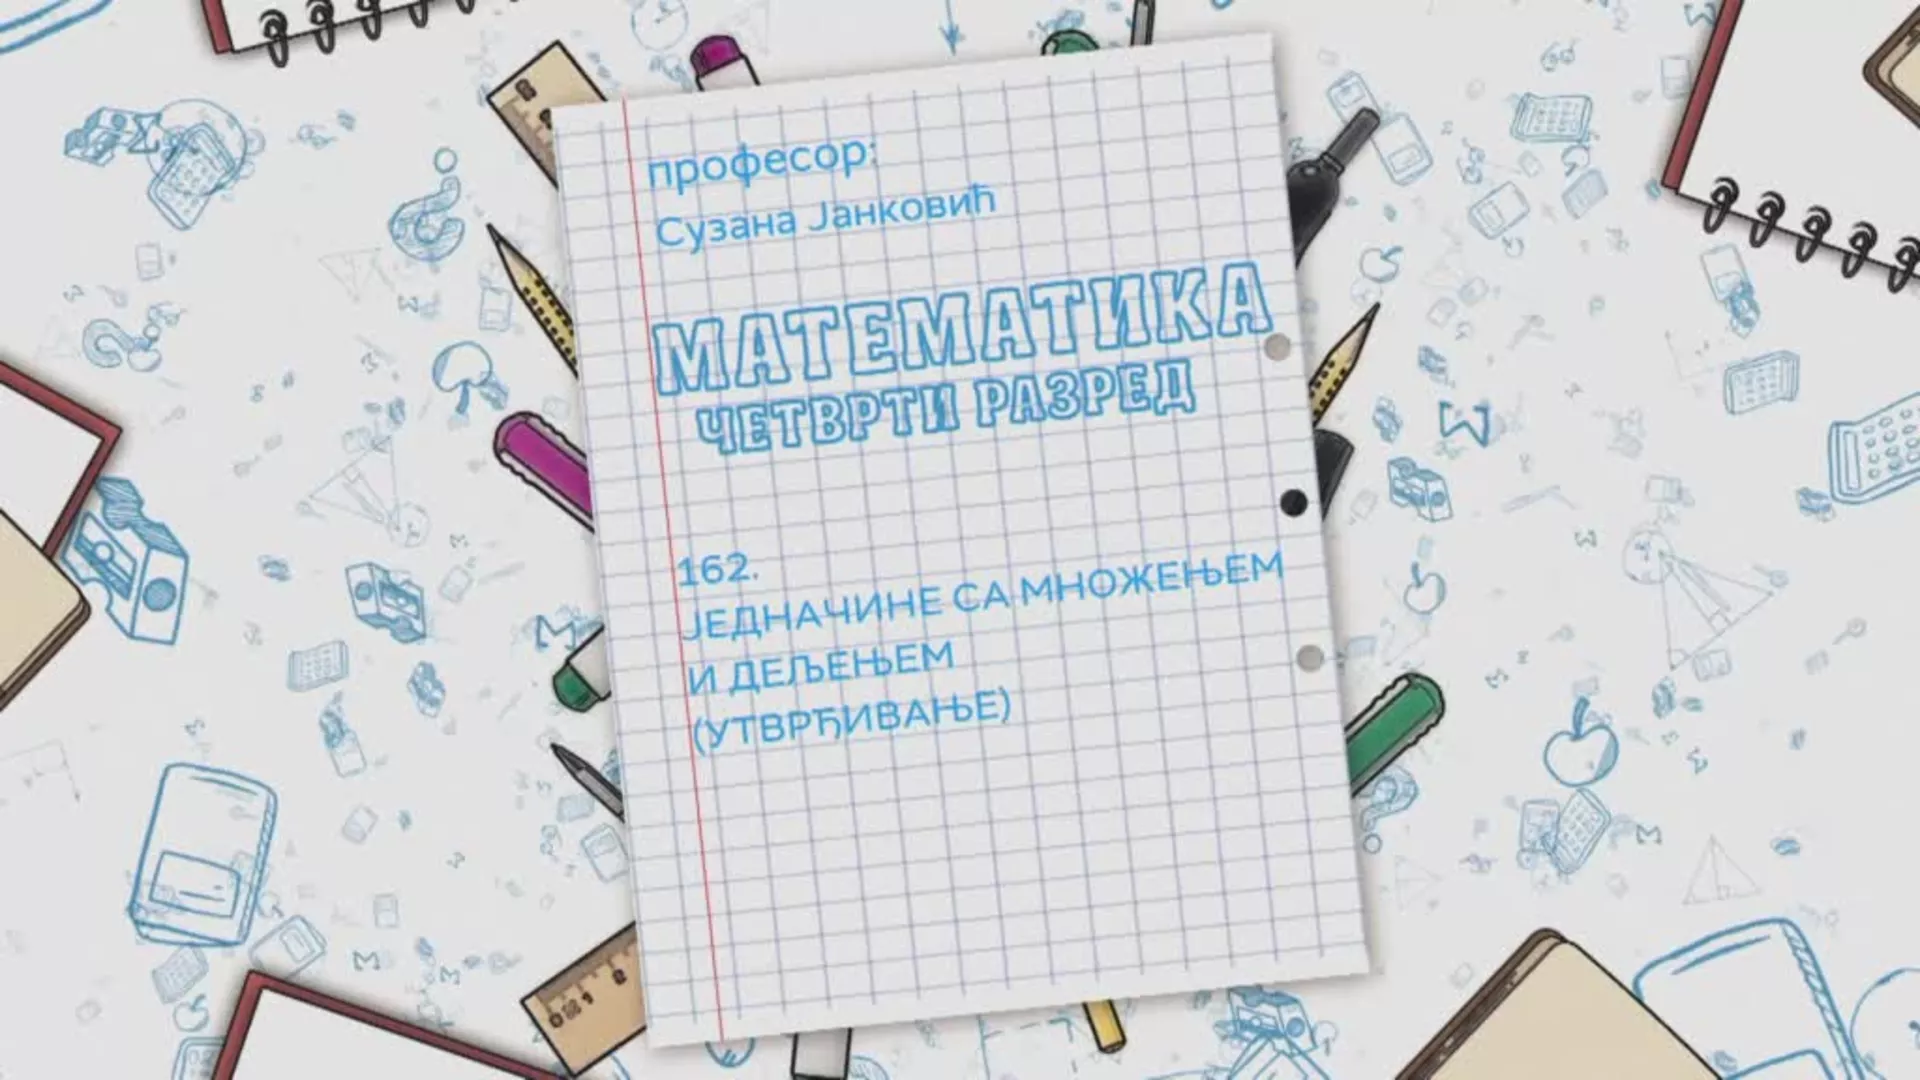 професор:
Сузана Јанковић
МАТЕМАТИКА
ЧЕТВРТИ РАЗРЕД
162.
ЈЕДНАЧИНЕ СА МНОЖЕЊЕМ
И ДЕЉЕЊЕМ
(УТВРЂИВАЊЕ)